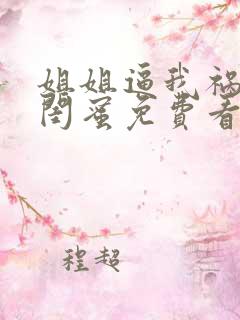 姐姐逼我祸
闺蜜免费看
程超